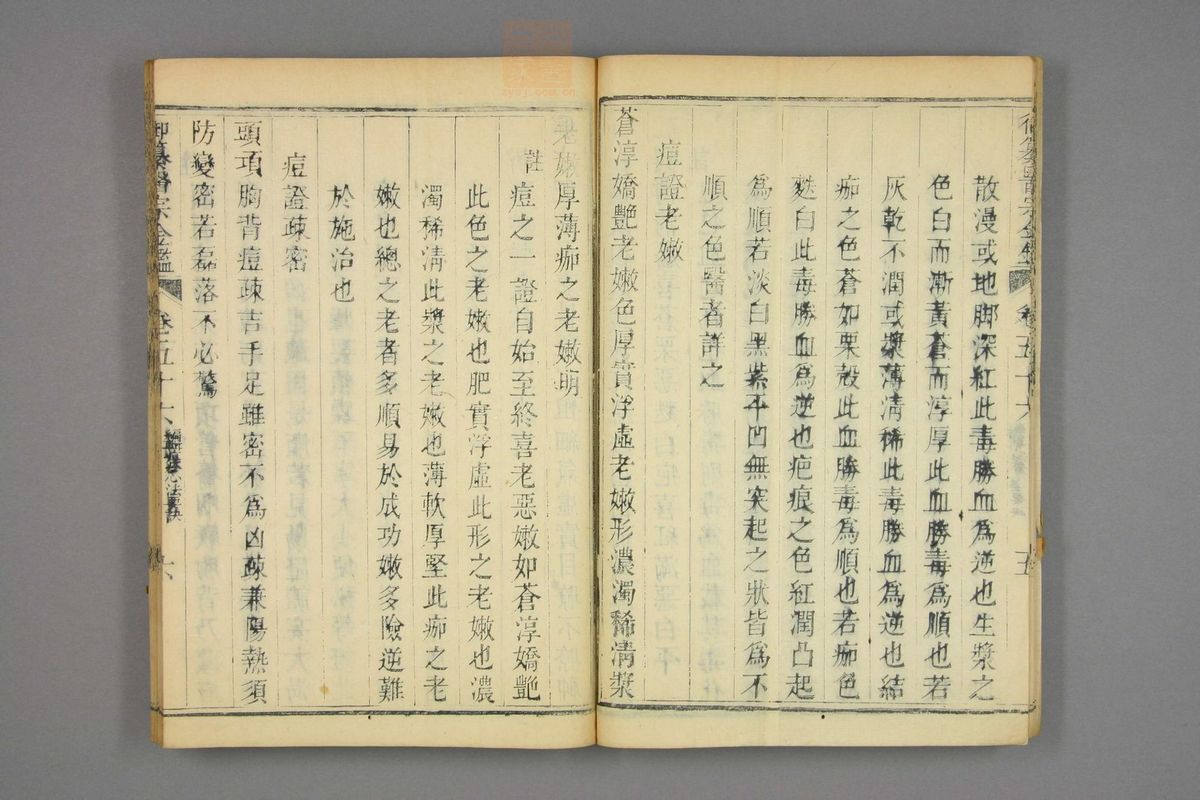 散漫或地脚深紅此毒勝血為逆也生漿之
色白而漸黃蒼而淳厚此血勝毒為順也若
灰乾不潤或漿薄清稀此毒勝血為逆也結
痂之色蒼如栗殼此血勝毒為順也若痂色
麩白此毒勝血為逆也疤痕之色紅潤凸起
為順若淡白黑紫不凹無突起之狀皆為不
順之色醫者詳之
痘證老嫩
蒼淳嬌艷老嫩色厚實浮虛老嫩形濃濁稀清漿
老嫩厚薄痂之老嫩明
註 痘之一證自始至終喜老惡嫩如蒼淳嬌艷
此色之老嫩也肥實浮虛此形之老嫩也濃
濁稀清此漿之老嫩也薄軟厚堅此痂之老
嫩也總之老者多順易於成功嫩多險逆難
於施治也
痘證疎密
頭項胸背痘疎吉手足雖密不為凶疎兼陽熱須
防變密若磊落不必驚
御纂醫宗金鑑 卷五十六 六